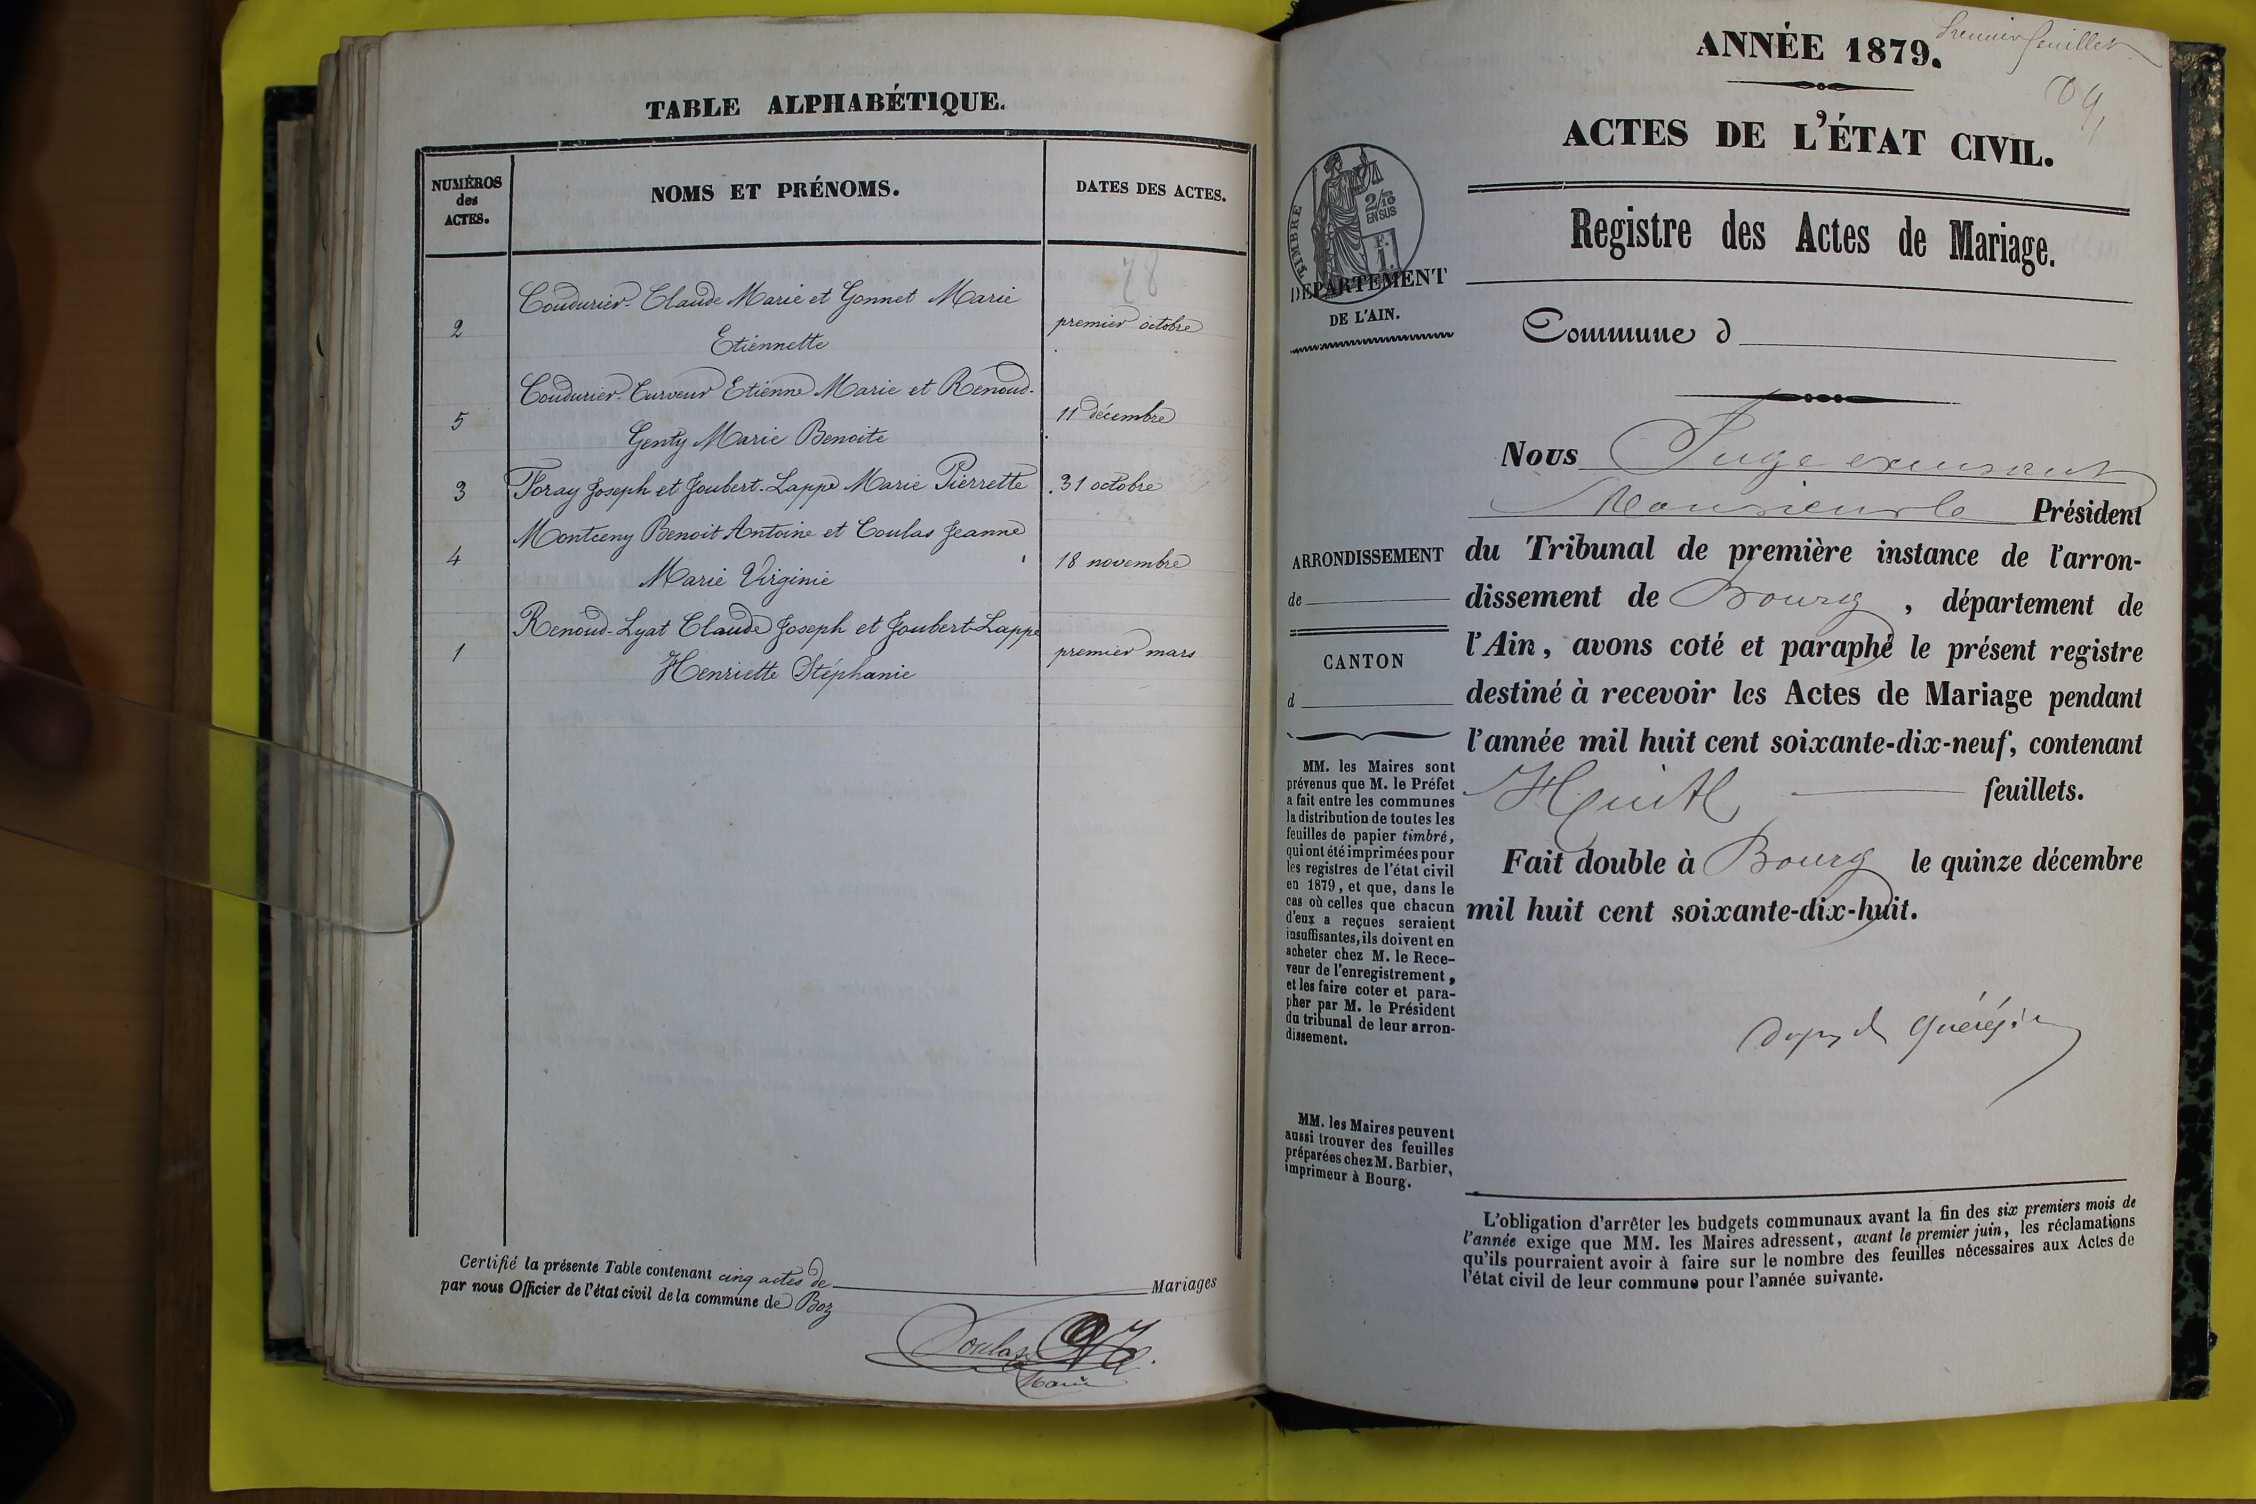 TABLE ALPHABÉTIQUE.
NUMÉROS
des
ACTES.
NOMS ET PRÉNOMS.
DATES DES ACTES.
78
2
Coudurier Claude Marie et Gonnet Marie
Etiennette
premier octobre
5
Coudurier-Curveur Etienne Marie et Renoud-
Genty Marie Benoite
11 décembre
3
Foray Joseph et Joubert-Lappe Marie Pierrette
31 octobre
4
Montceny Benoit Antoine et Coulas Jeanne
Marie Virginie
18 novembre
1
Renoud-Lyat Claude Joseph et Joubert-Lappe
Henriette Stéphanie
premier mars
Certifié la présente Table contenant cinq actes de Mariages
par nous Officier de l'état civil de la commune de Boz
Coulas
Maire
Premier feuillet
ANNÉE 1879.
ACTES DE L'ÉTAT CIVIL.
Registre des Actes de Mariage.
TIMBRE
2/10
EN SUS
F.
1.
DÉPARTEMENT
DE L'AIN.
Commune d
Nous Juge exerçant
Monsieur le Président
ARRONDISSEMENT
de
CANTON
d
du Tribunal de première instance de l'arron-
dissement de Bourg, département de
l'Ain, avons coté et paraphé le présent registre
destiné à recevoir les Actes de Mariage pendant
l'année mil huit cent soixante-dix-neuf, contenant
Huit feuillets.
Fait double à Bourg le quinze décembre
mil huit cent soixante-dix-huit.
MM. les Maires sont
prévenus que M. le Préfet
a fait entre les communes
la distribution de toutes les
feuilles de papier timbré,
qui ont été imprimées pour
les registres de l'état civil
en 1879, et que, dans le
cas où celles que chacun
d'eux a reçues seraient
insuffisantes, ils doivent en
acheter chez M. le Rece-
veur de l'enregistrement,
et les faire coter et para-
pher par M. le Président
du tribunal de leur arron-
dissement.
MM. les Maires peuvent
aussi trouver des feuilles
préparées chez M. Barbier,
imprimeur à Bourg.
L'obligation d'arrêter les budgets communaux avant la fin des six premiers mois de
l'année exige que MM. les Maires adressent, avant le premier juin, les réclamations
qu'ils pourraient avoir à faire sur le nombre des feuilles nécessaires aux Actes de
l'état civil de leur commune pour l'année suivante.